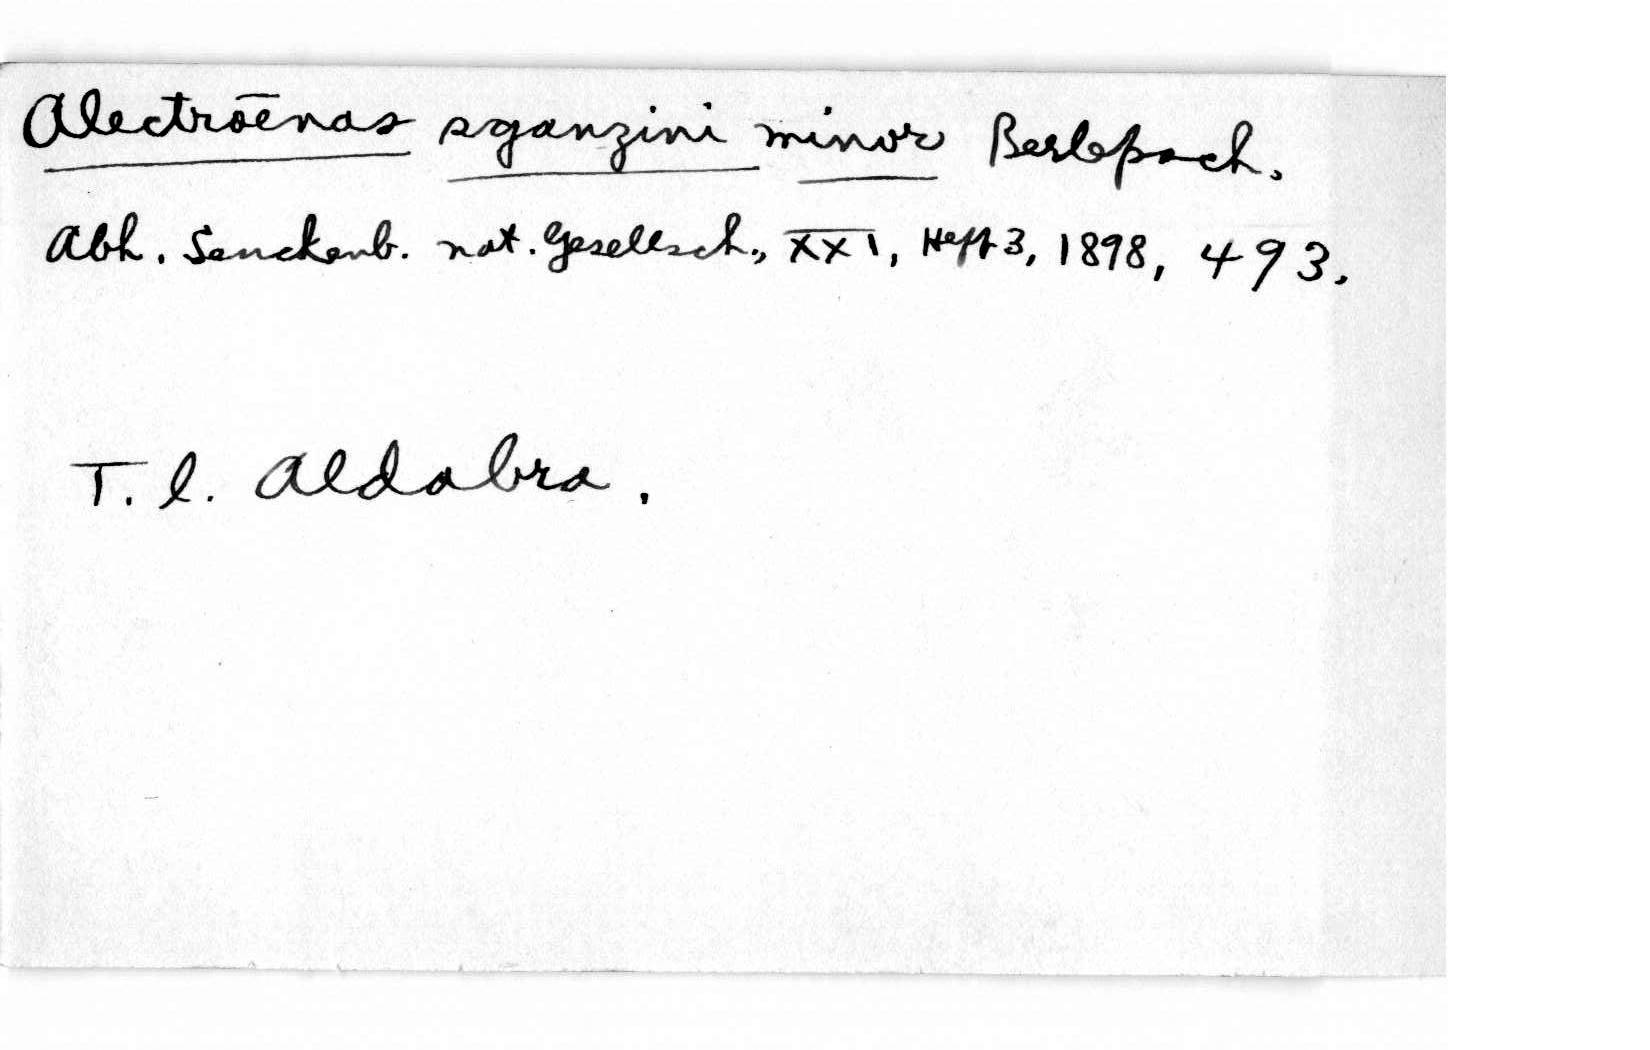 Alectroënas sganzini minor Berlepsch.
Abh. Senckenb. nat. Gesellsch., XXI, Heft 3, 1898, 493.
T. l. Aldabra.